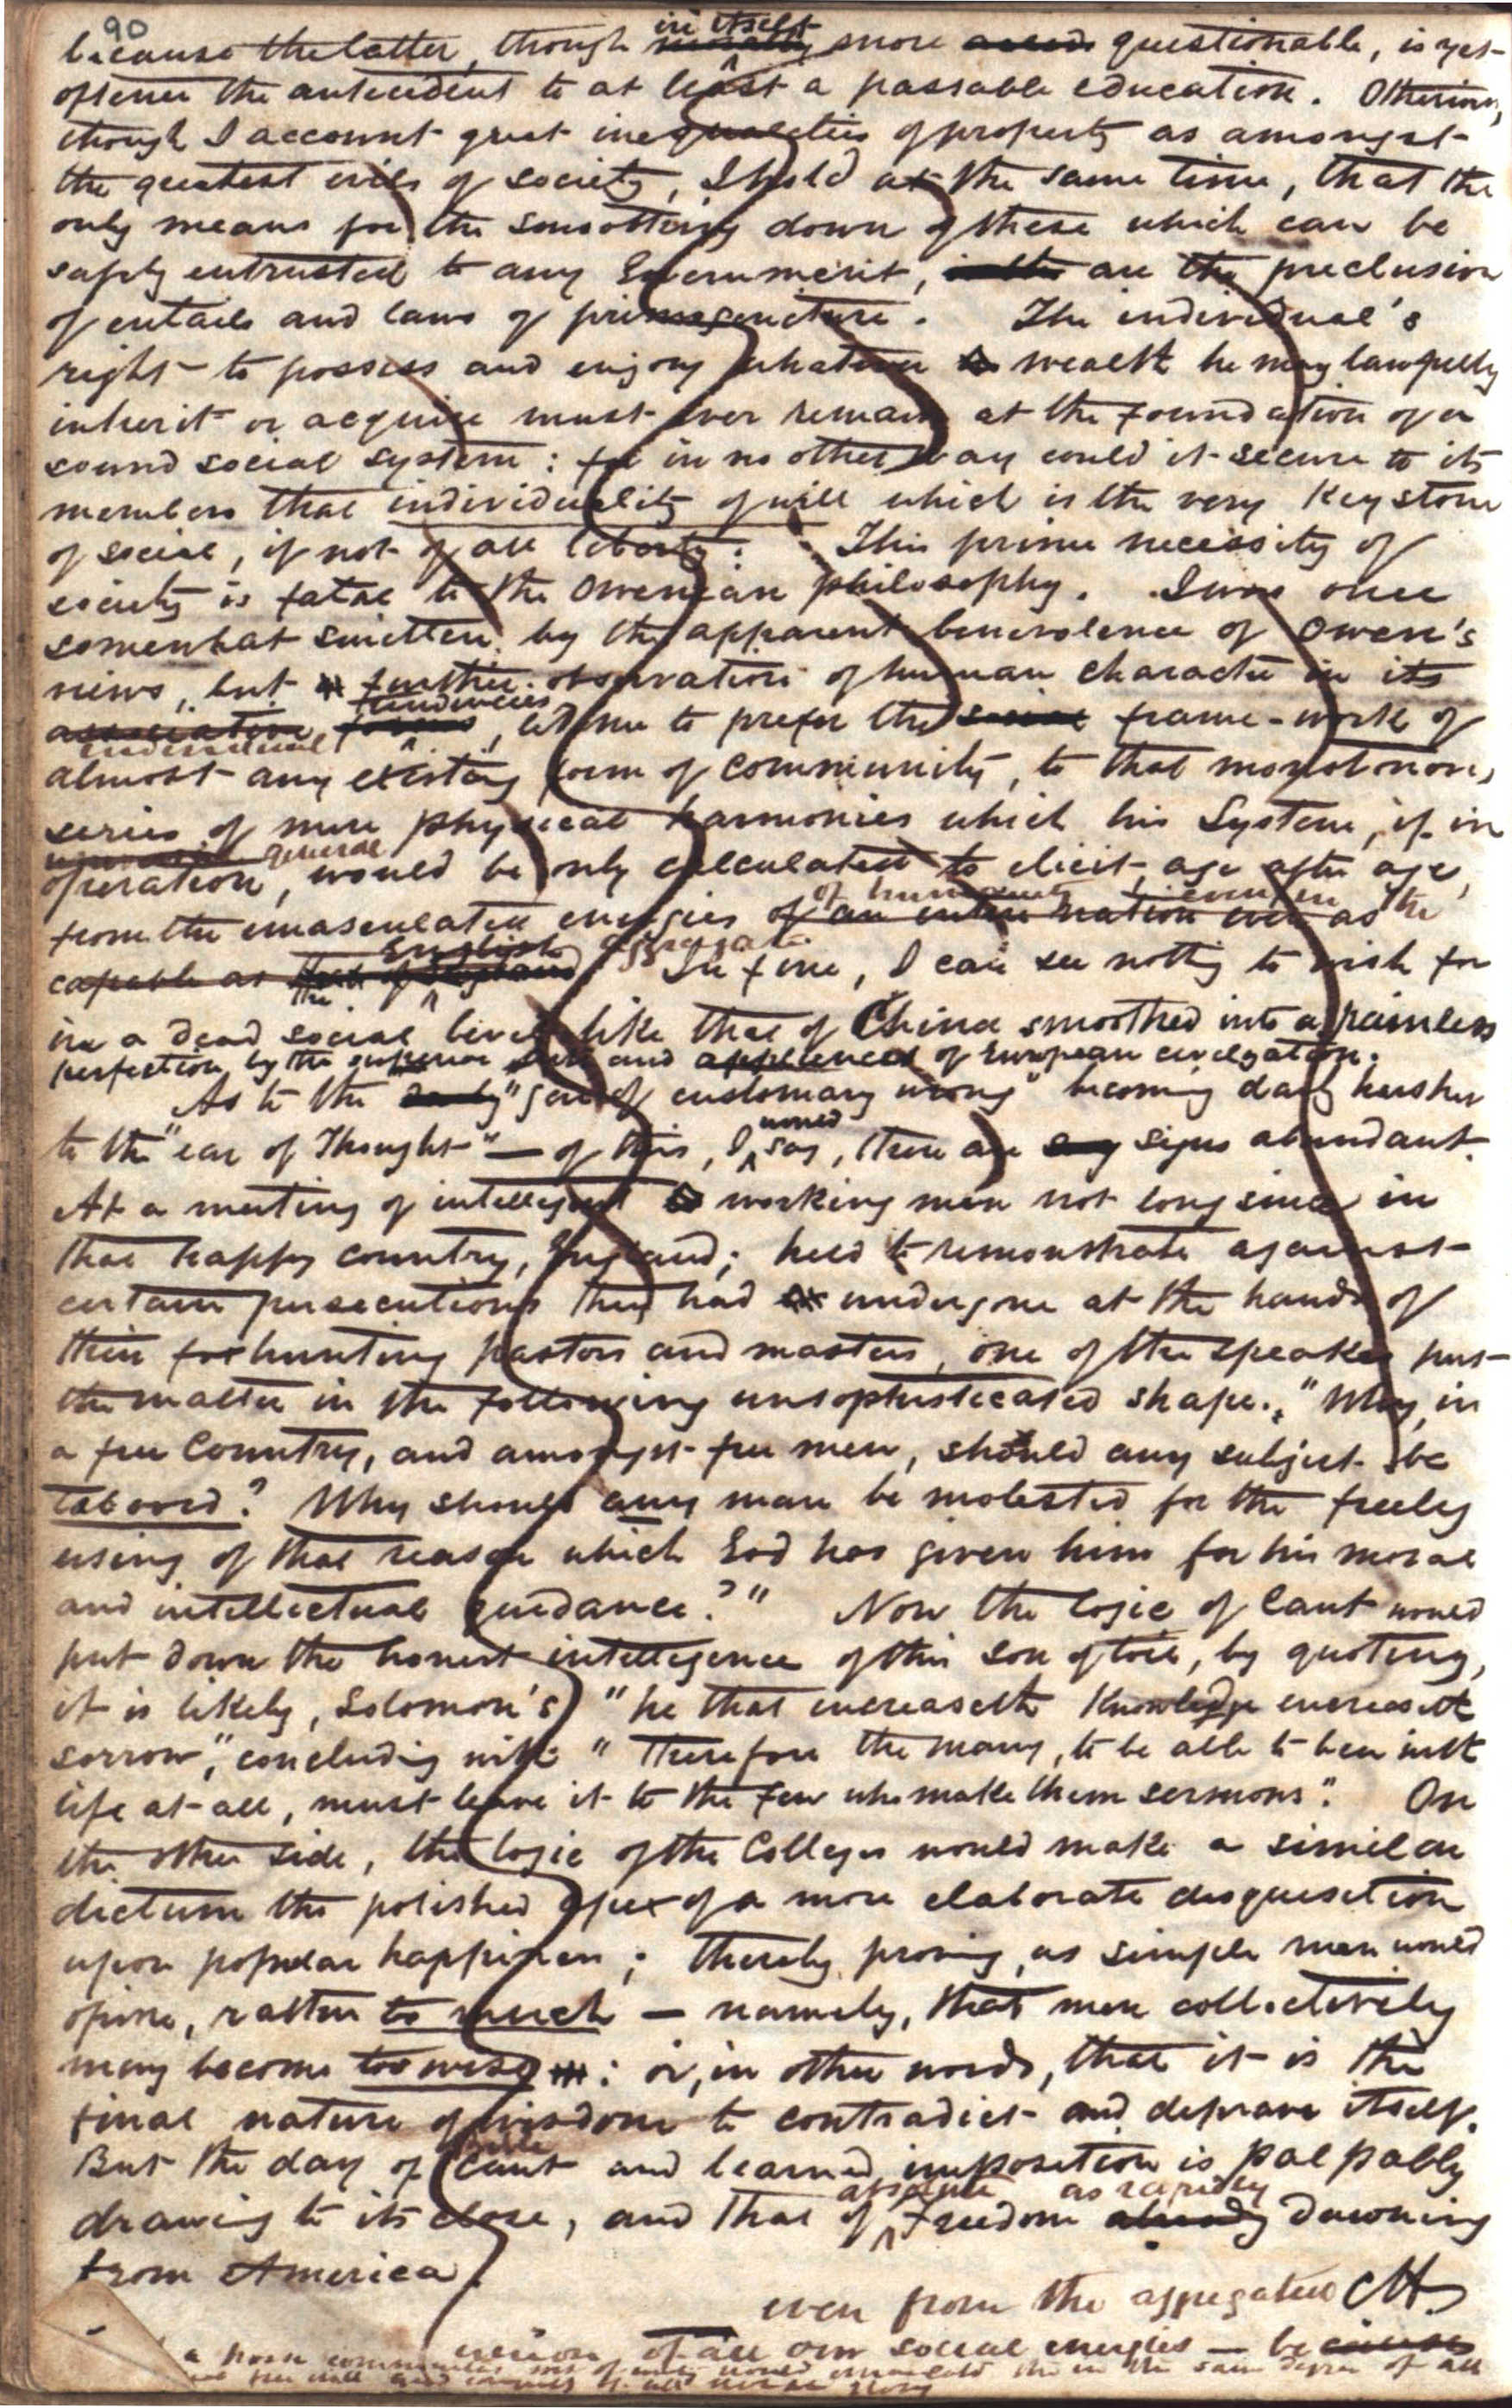 90
because the latter, though in itself more questionable, is yet
oftener the antecedent to at least a passable education. Otherwise,
though I account great inequalities of property as amongst
the greatest evils of society, I hold at the same time, that the
only means for the smoothing down of these which can be
safely entrusted to any Government, are the preclusion
of entails and laws of primogeniture. The individual's
right to possess and enjoy whatever wealth he may lawfully
inherit or acquire must ever remain at the foundation of a
sound social system: for in no other way could it secure to its
members that individuality of will which is the very Keystone
of social, if not of all liberty. This prime necessity of
society is fatal to the Owenian philosophy. I was once
somewhat smitten by the apparent benevolence of Owen's
views, but further observation of human character in its
associative tendencies, led me to prefer the social frame-work of
almost any existing form of community, to that monotonous
series of mere physical harmonies which his System, if in
general
operation, would be only calculated to elicit, age after age,
of humanity even in the
from the emasculated energies of an entire nation even as
English aggregate.
capable as In fine, I can see nothing to wish for
in a dead social level like that of China smoothed into a painless
perfection by the superior and appliances of European civilization.
As to the "jar of customary wrong" becoming daily harsher
to the "ear of Thought" — of this, I would say, there are signs abundant.
At a meeting of intelligent working men not long since in
that happy country, England; held to remonstrate against
certain persecutions they had undergone at the hands of
their foxhunting pastors and masters, one of the speakers put
the matter in the following unsophisticated shape. "Why, in
a free Country, and amongst free men, should any subject be
tabooed? Why should any man be molested for the freely
using of that reason which God has given him for his moral
and intellectual guidance?" Now the logic of Cant would
put down the honest intelligence of this son of toil, by quoting,
it is likely, Solomon's "he that increaseth Knowledge increaseth
sorrow", concluding with "Therefore the many, to be able to bear with
life at all, must leave it to the few who make them sermons". On
the other side, the logic of the Colleges would make a similar
dictum the polished apex of a more elaborate disquisition
upon popular happiness; thereby proving, as simple men would
opine, rather to much — namely, that men collectively
may become too wise: or, in other words, that it is the
final nature of wisdom to contradict and deprave itself.
But the day of Cant and learned imposition is palpably
absolute as rapidly
drawing to its close, and that of freedom already dawning
from America.
even from the aggregated CH.
union of all our social energies — because